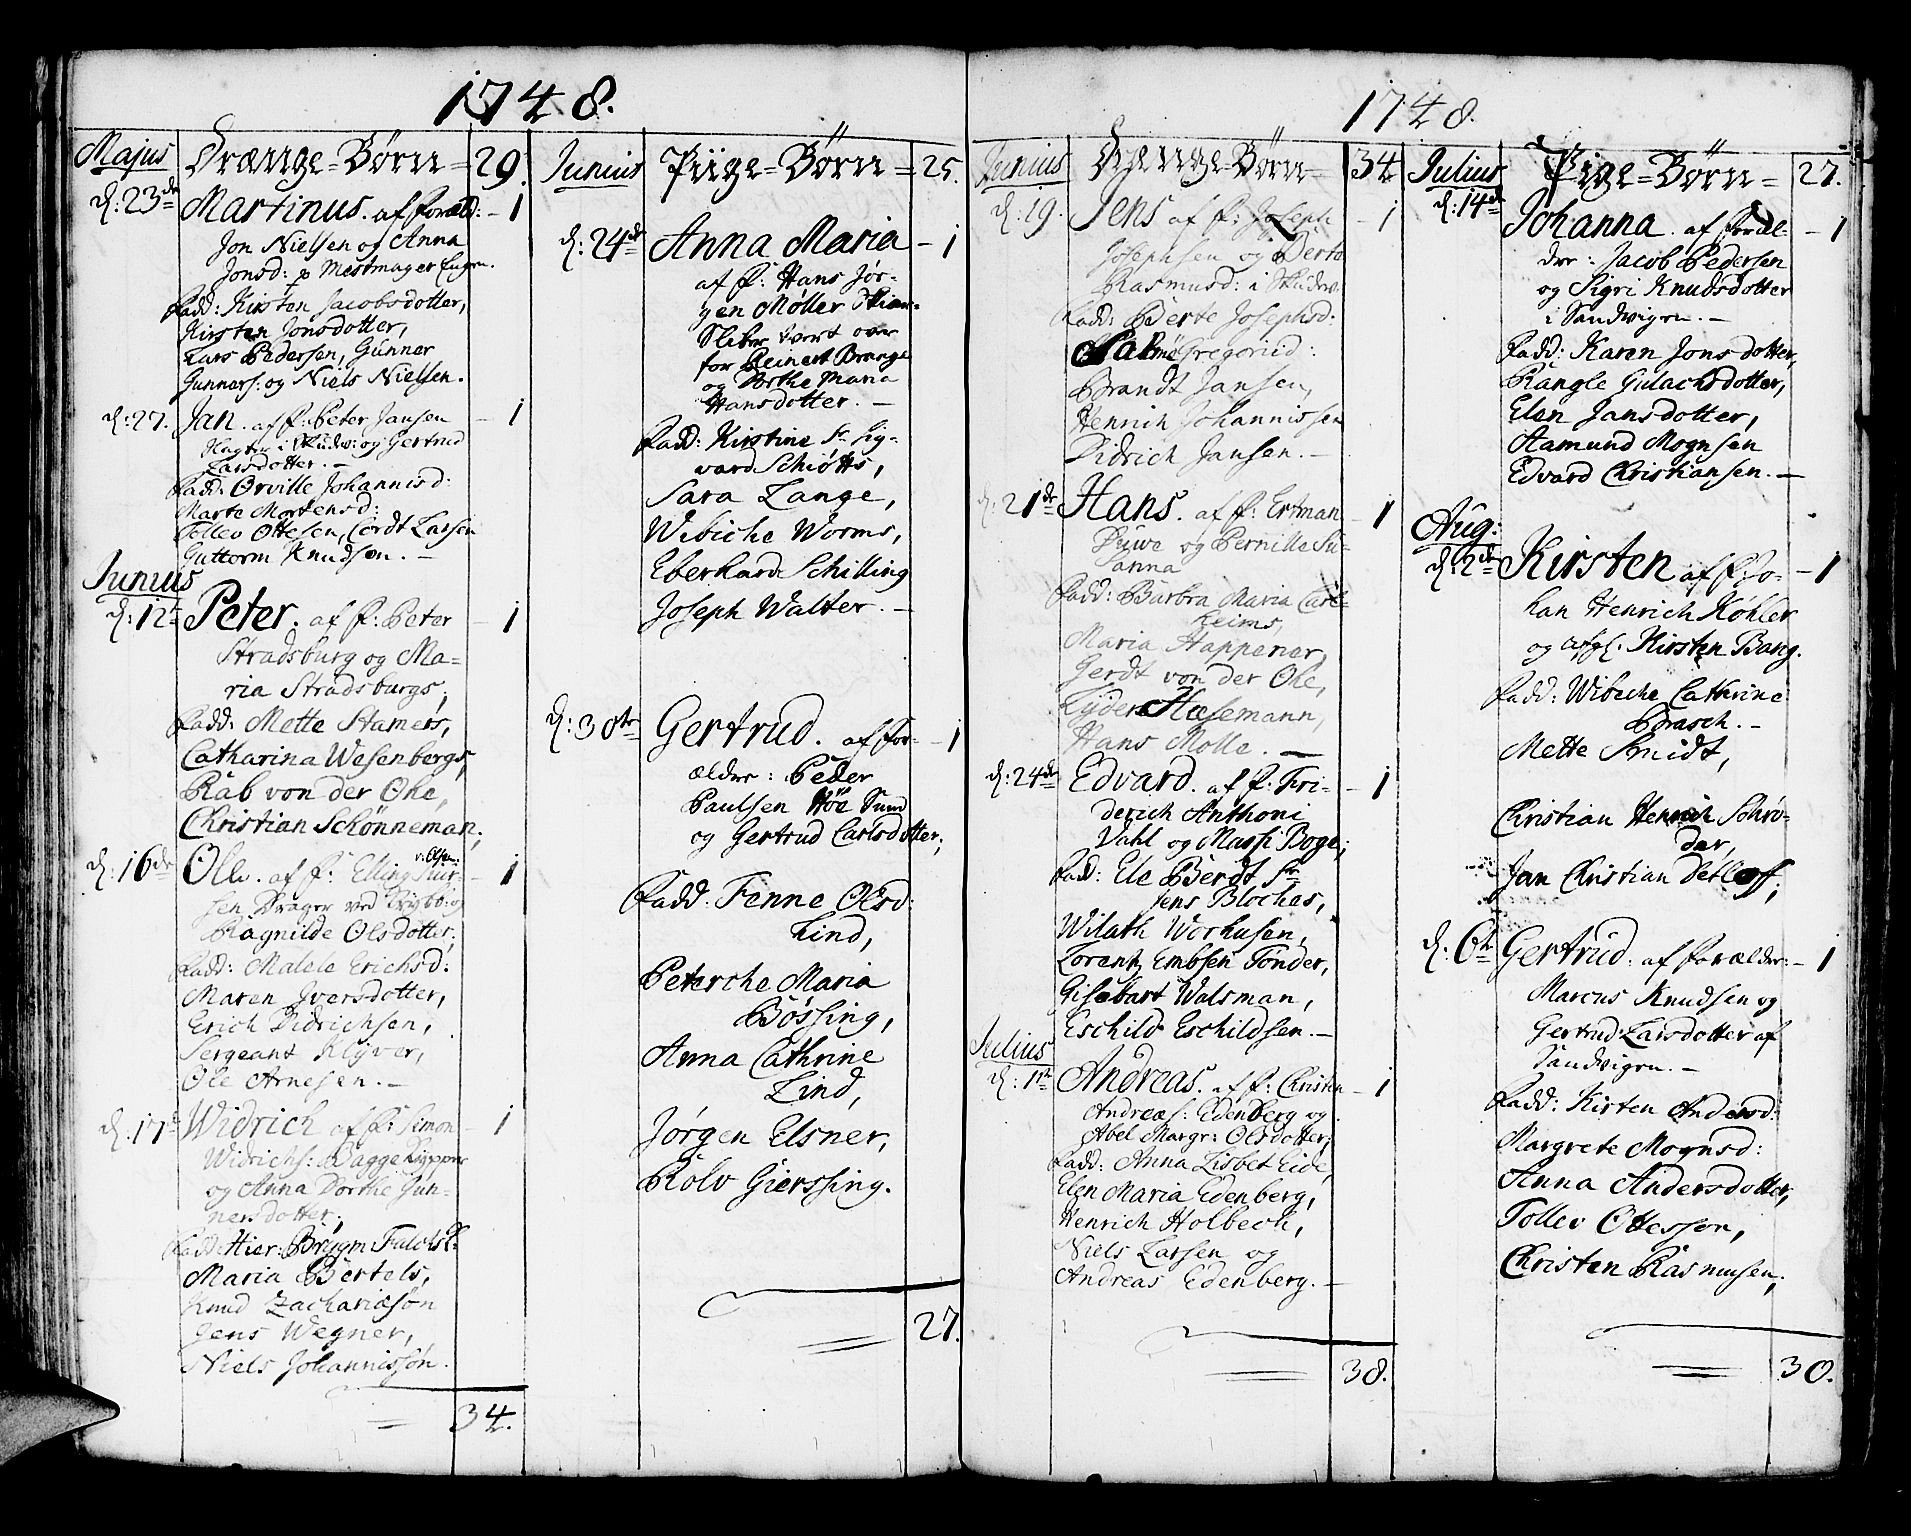 1748.
Majus Drænge=Børn= 29.
d: 23de Martinus. af Foræld: - 1
Jon Nielsen og Anna
Jonsd: p Mestmager Eugen.
Fadd: Kirsten Jacobsdotter,
Kirsten Jonsdotter,
Lars Pedersen, Gunner
Gunners: og Niels Nielsen.
d: 27. Jan. af F: Peter Jansen - 1
i Skudev: og Gertrud
Larsdotter. -
Fadd: Orville Johannisd:
Marte Mortensd:
Tollev Ottesen, Cordt Larsen
Guttorm Knudsøn. -
Junius
d: 12te Peter. af F: Peter - 1
Stradsburg og Ma-
ria Stradsburgs,
Fadd: Mette Stamers,
Catharina Wesenbergs,
Rab von der Ohe,
Christian Schønneman,
d: 16de Ole. af F: Elling - 1
v: Olsen:
sen Drager ved Krybb: og
Ragnilde Olsdotter,
Fadd: Malele Erichsd:
Maren Iversdotter,
Erich Didrichsen,
Sergeant Klyver,
Ole Arnesen. -
d: 17de Widrich af F: Simon - 1
Widrichs: Bagge Kypper
og Anna Dorthe Gun-
nersdotter,
Fadd: Hier: Brygm: Falchs
Maria Bertels,
Knud Zachariæsøn
Jens Wegner,
Niels Johannissøn.
34.
Junius Piige=Børn= 25.
d: 24de Anna Maria - 1
af F: Hans Jør-
gen Møller
Sliber tvert over
for Reinert Brange
og Dorthe Maria
Hansdotter. -
Fadd: Kirstine Sr Sig-
vard Schiøtts,
Sara Lange,
Wibiche Worms,
Eberhard Schilling
Joseph Walter. -
d: 30te Gertrud. af For- - 1
ældre: Peder
Paulsen Höe Sund
og Gertrud Carlsdotter;
Fadd: Fenne Olsd:
Lind,
Peterche Maria
Bøssing,
Anna Cathrine
Lind,
Jørgen Elsner,
Rolv Gierssing.
27.
1748.
Junius Drenge=Børn= 34
d: 19. Jens af F: Joseph - 1
Josephsen og Berte
Rasmusd: i Skudev:
Fadd: Berte Josephsd:
Gregorijd:
Brandt Jansen,
Henrich Johannissen
Didrich Jansen. -
d: 21de Hans. af F: Ertman - 1
Duwe og Pernille Su-
sanna
Fadd: Barbra Maria Carl-
heims,
Maria Happener,
Gerdt von der Ohe,
Lyder Hasemann,
Hans Molle. -
d: 24de Edvard. af F: Fri- - 1
derich Anthoni
Vahl og Massi Boge;
Fadd: Ele Berdt Sr
Jens Bloches,
Wilath Worhusen,
Lorentz Embsen Tønder,
Gisebart Walsman,
Eschild Eschildsen. -
Julius
d: 11te Andreas. af F: Christen - 1
Andreæs: Edenberg og
Abel Margr: Olsdotter;
Fadd: Anna Lisbet Eide,
Elen Maria Edenberg,
Henrich Holbech,
Niels Larsen og
Andreas Edenberg. -
38.
Julius Piige=Børn= 27.
d: 14de Johanna. af Foræl- - 1
dre: Jacob Pedersen
og Sigri Knudsdotter
i Sandvigen. -
Fadd: Karen Jonsdotter,
Rangle Gulachsdotter,
Elen Jansdotter,
Aamund Mognsen
Edvard Christiansen. -
Aug:
d: 2de Kirsten af F: Jo- - 1
han Henrich Køhler
og Kirsten Bang.
Fadd: Wibeche Cathrine
Brasch. -
Mette Smidt,
Christian Henrich Schrø-
der,
Jan Christian Detleff;
d: 6te Gertrud. af Forældre: - 1
Marcus Knudsen og
Gertrud Larsdotter af
Sandvigen. -
Fadd: Kirsten Andersd:
Margrete Mognsd:
Anna Andersdotter,
Tollev Ottessøn,
Christen Rasmusen,
30.